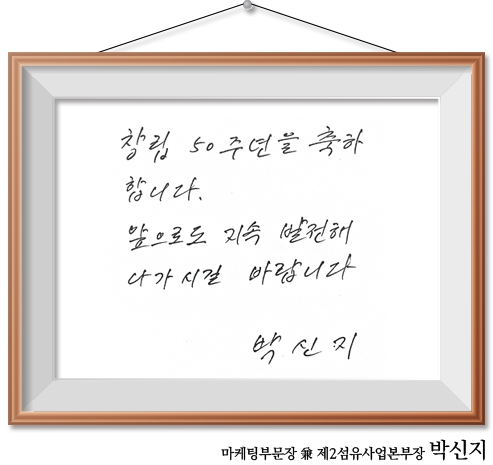 창립 50주년을 축하
합니다.
앞으로도 지속 발전해
나가시길 바랍니다
박신지
마케팅부문장 兼 제2섬유사업본부장 박신지